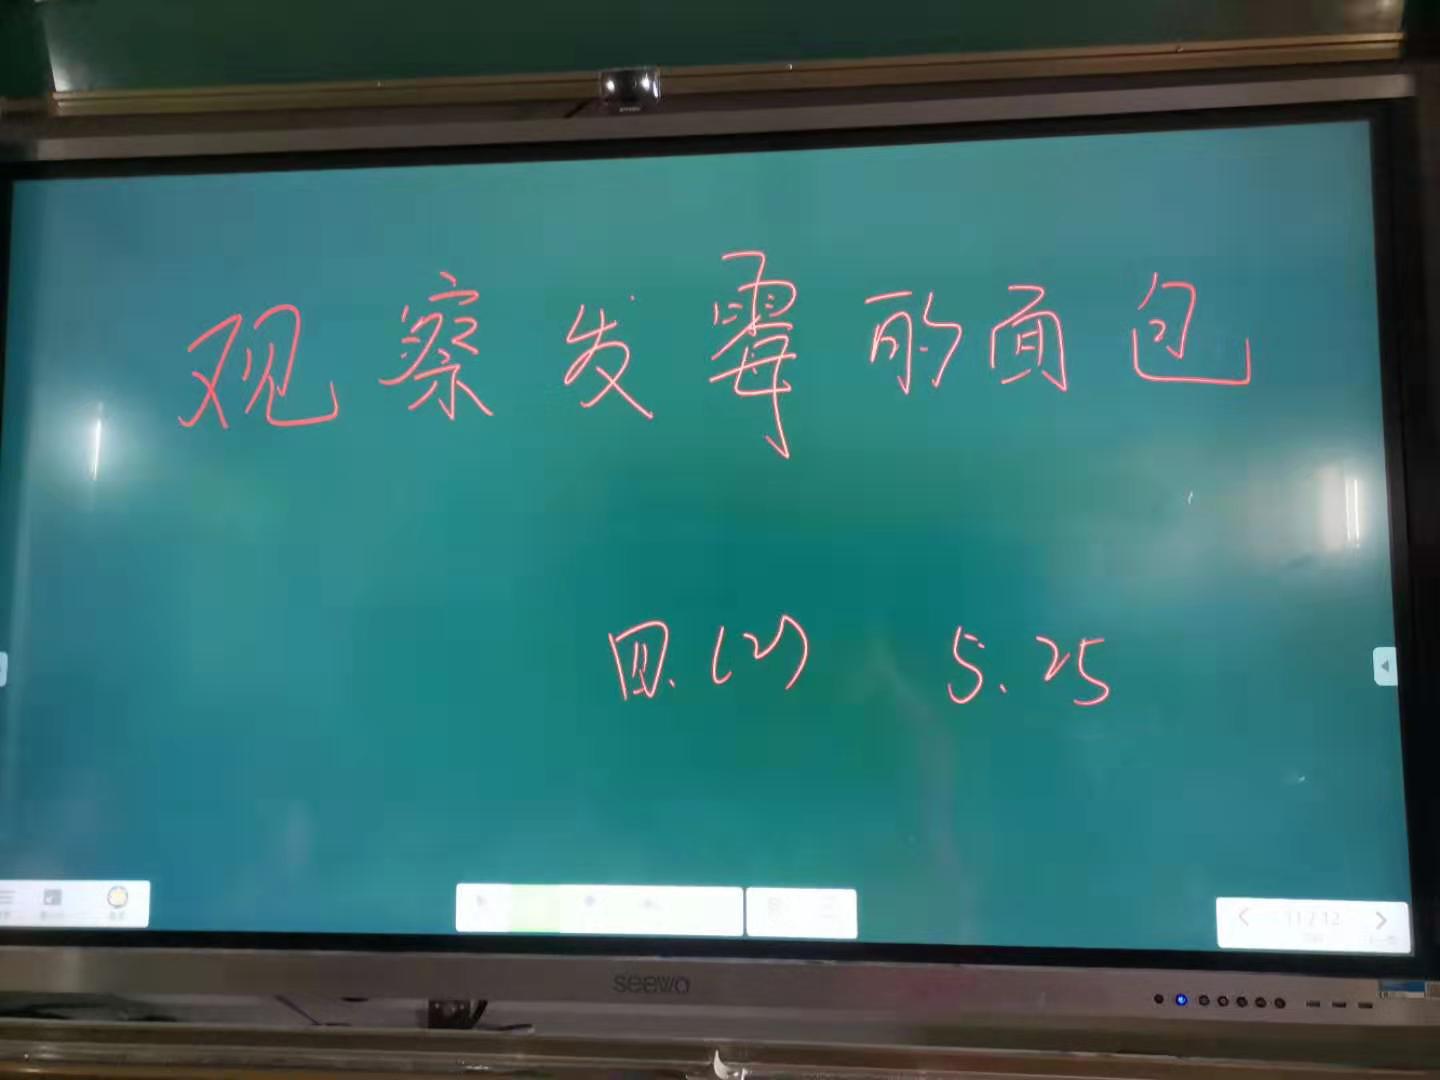 观察发霉的面包
四.(2) 5.25
11/12
seewo